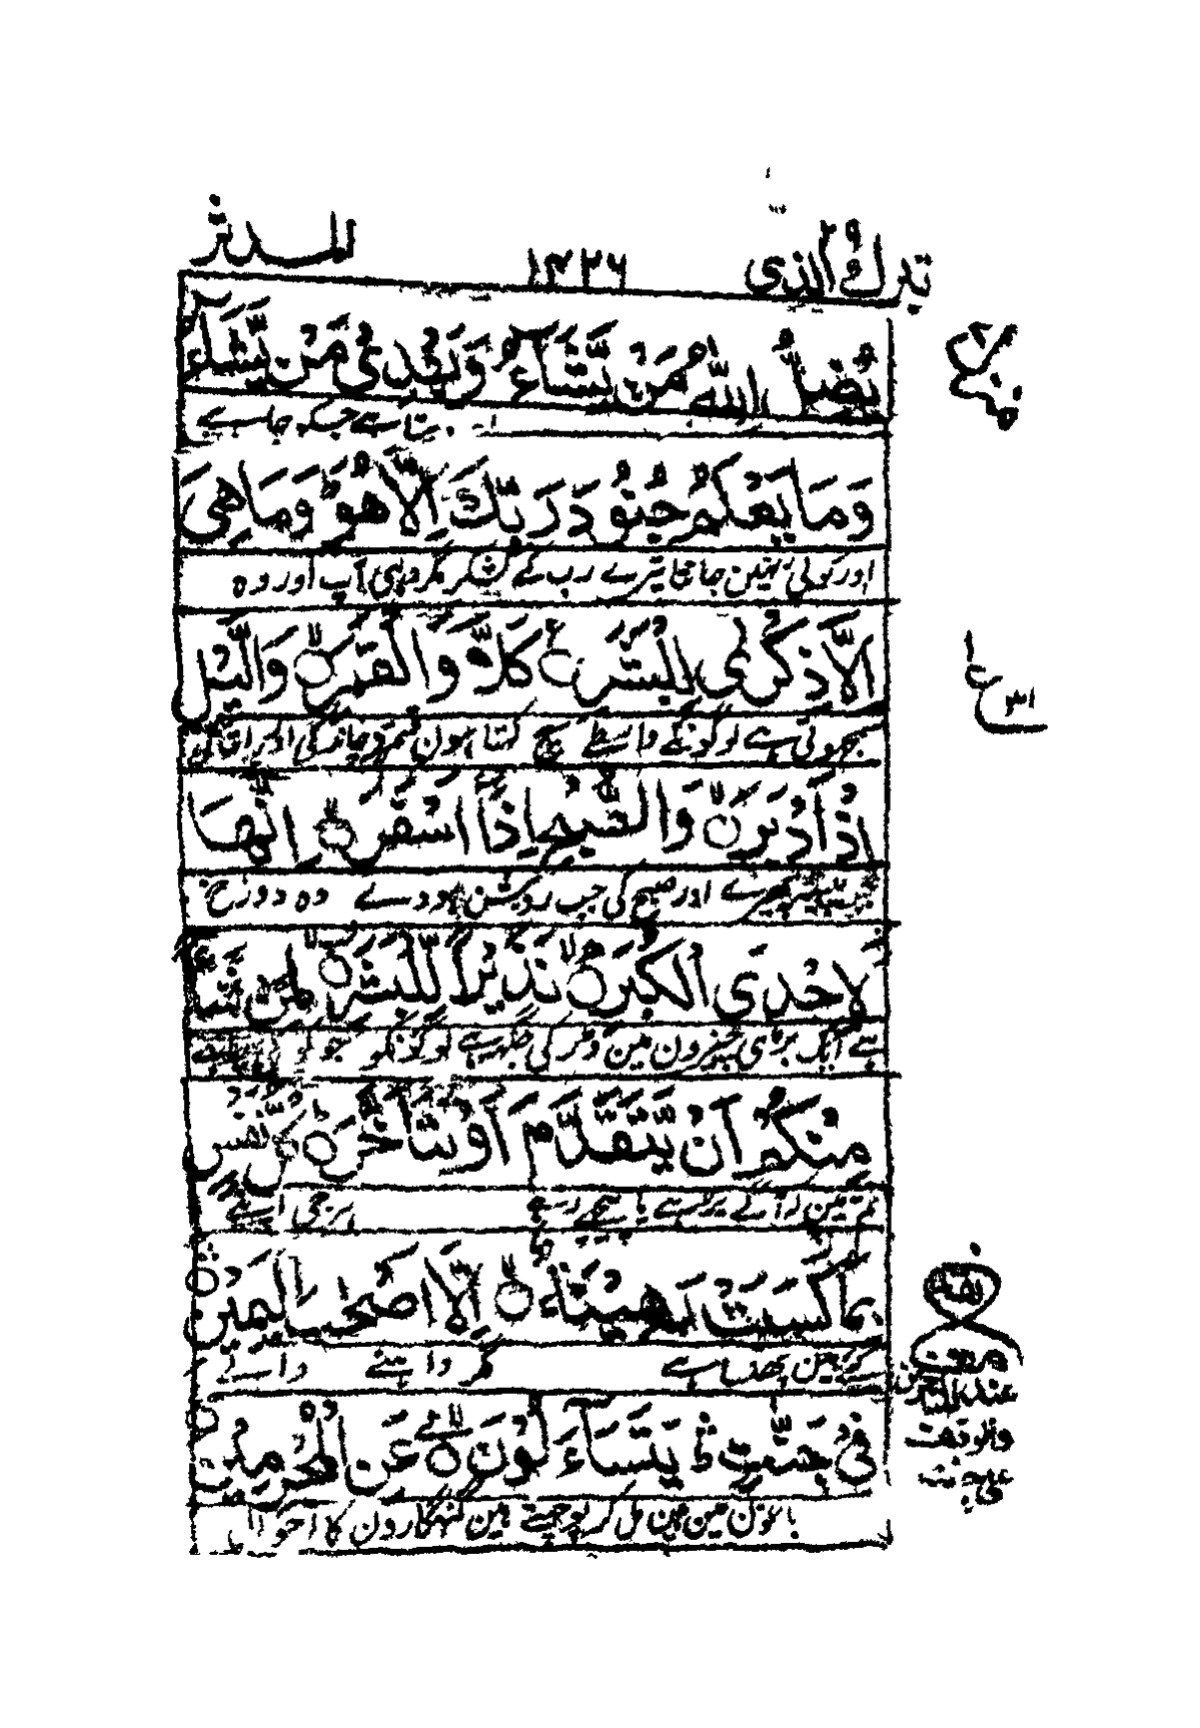 تبرك الذی ٢٩
١٣٢٦
المدثر
يُضِلُّ اللّٰهُ مَنْ يَّشَآءُ وَيَهْدِيْ مَنْ يَّشَآءُ
ہے جسکو چاہے
وَمَا يَعْلَمُ جُنُوْدَ رَبِّكَ اِلَّا هُوَ ۚ وَمَا هِيَ
اور کوئی نہین جانتا تیرے رب کے لشکر مگر وہی آپ اور وہ
اِلَّا ذِكْرٰى لِلْبَشَرِ ۝ كَلَّا وَالْقَمَرِ ۝ وَالَّيْلِ
سمجھوتی ہے لوگونکے واسطے سچ کہتا ہون قسم ہے چاند کی اور رات کی
اِذْ اَدْبَرَ ۝ وَالصُّبْحِ اِذَآ اَسْفَرَ ۝ اِنَّهَا
پھرے اور صبح کی جب روشن ہووے وہ دوزخ
لَاِحْدَى الْكُبَرِ ۝ نَذِيْرًا لِّلْبَشَرِ ۝ لِمَنْ شَآءَ
ہے ایک بڑی چیزون مین ڈر کی جگہ ہے لوگونکو جو کو چاہے
مِنْكُمْ اَنْ يَّتَقَدَّمَ اَوْ يَتَاَخَّرَ ۝ كُلُّ نَفْسٍۭ
تم مین کہ آگے بڑھے یا پیچھے رہے ہر جی اپنے
بِمَا كَسَبَتْ رَهِيْنَةٌ ۝ اِلَّآ اَصْحٰبَ الْيَمِيْنِ ۝
مین پھنسا ہے مگر داہنے والے
فِيْ جَنّٰتٍ ۛ يَتَسَآءَلُوْنَ ۝ عَنِ الْمُجْرِمِيْنَ ۝
باغون مین ہین مل کر پوچھتے ہین گنہگارون کا احوال